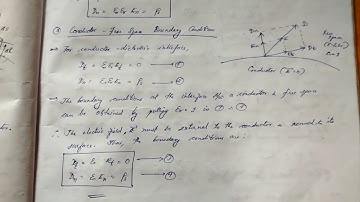 Dn = E0 Er En = ρs
③ Conductor - Free Space Boundary Conditions
→ For conductor - dielectric interface,
Dt = E0 Er Et = 0 → ①
Dn = E0 Er En = ρs → ②
→ The boundary conditions at the interface b/w a conductor & free space
can be obtained by putting Er = 1 in ① & ②
∴ The electric field, E must be external to the conductor & normal to its
surface. Thus, the boundary conditions are:
Dt = E0 Et = 0 → ③
Dn = E0 En = ρs → ④
Dn
D
En
Dt
Free
Space
Conductor (E = 0)